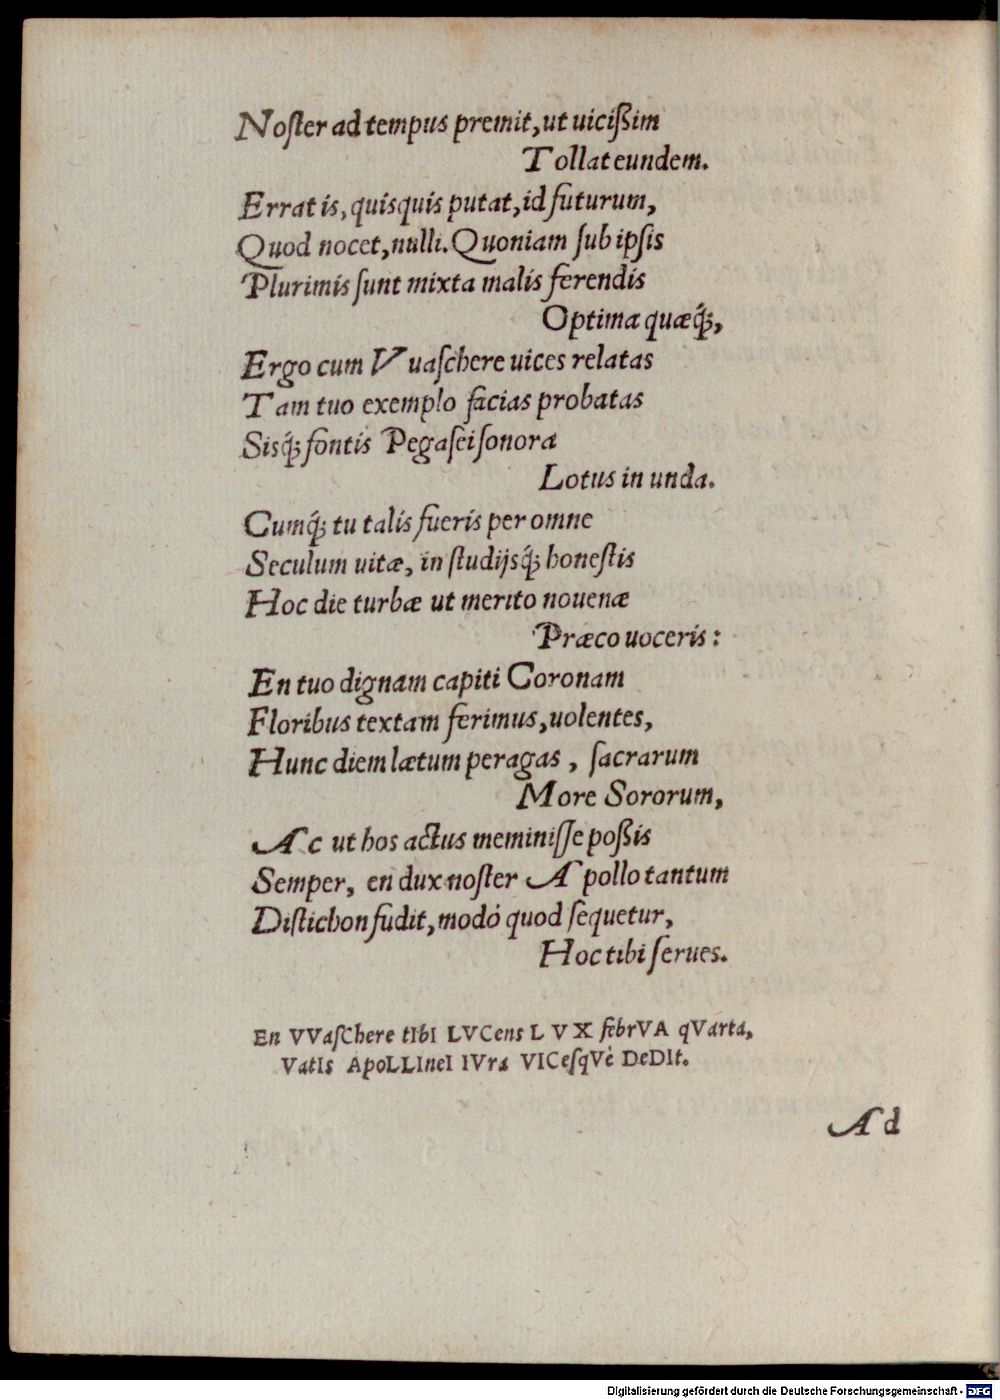 Noſter ad tempus premit, ut uicißim
Tollat eundem.
Errat is, quisquis putat, id futurum,
Quod nocet, nulli. Quoniam ſub ipſis
Plurimis ſunt mixta malis ferendis
Optima quæq́;,
Ergo cum Vuaſchere uices relatas
Tam tuo exemplo facias probatas
Sisq́; fontis Pegaſei ſonora
Lotus in unda.
Cumq́; tu talis fueris per omne
Seculum uitæ, in ſtudijsq́; honeſtis
Hoc die turbæ ut merito nouenæ
Præco uoceris:
En tuo dignam capiti Coronam
Floribus textam ferimus, uolentes,
Hunc diem lætum peragas, ſacrarum
More Sororum,
Ac ut hos actus meminiſſe poßis
Semper, en dux noſter Apollo tantum
Diſtichon fudit, modó quod ſequetur,
Hoc tibi ſerues.
En VVaſChere tIbI LVCens LVX febrVA qVarta,
VatIs ApoLLIneI IVra VICeſqVè DeDIt.
Ad
Digitalisierung gefördert durch die Deutsche Forschungsgemeinschaft - DFG